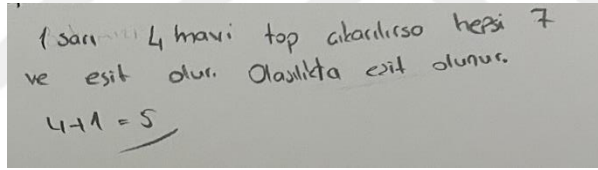 1 sarı 4 mavi top çıkarılırsa hepsi 7
ve eşit olur. Olasılıkta eşit olunur.
4+1 = 5